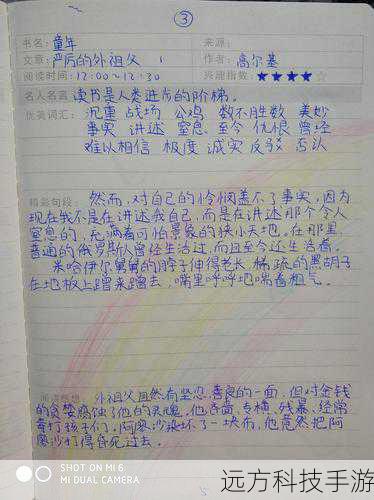 ③
书名：童年 来源：
文章：严厉的外祖父 作者：高尔基
阅读时间：12:00~12:30 兴趣指数：★★★★☆
名人名言 读书是人类进步的阶梯。
优美词汇： 沉重 战场 公鸡 数不胜数 美妙
事实 讲述 窒息 至今 仇恨 曾经
难以相信 极度 诚实 反驳 否认
精彩句段： 然而，对自己的怜悯盖不了事实，因为
现在我不是在讲述我自己，而是在讲述那个令人
窒息的，充满着可怕景象的狭小天地。在那里，
普通的俄罗斯人曾经生活过，而且至今还生活着。
米哈伊尔舅舅的脖子伸得老长，稀疏的黑胡子
在地板上蹭来蹭去，嘴里呼呼地喘着粗气。
外祖父虽然有坚忍、善良的一面，但对金钱
的贪婪腐蚀了他的灵魂。他吝啬、专横、残暴，经常
毒打孩子们，阿廖沙染坏了一块布，他竟然把阿
廖沙打得昏死过去。
5
SHOT ON MI 6
MI DUAL CAMERA
远方科技手游